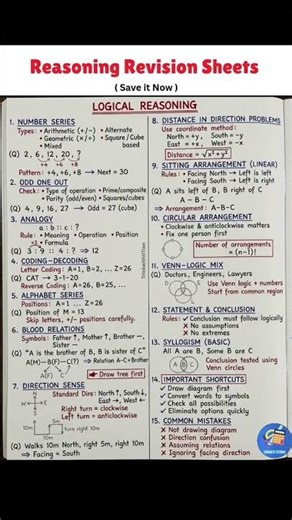 Reasoning Revision Sheets
( Save it Now )
LOGICAL REASONING
1. NUMBER SERIES
Types: • Arithmetic (+/−) • Alternate
• Geometric (×/÷) • Square/Cube
• Mixed based
(Q) 2, 6, 12, 20, ?
+4 +6 +8
Pattern: +4, +6, +8 → Next = 30
2. ODD ONE OUT
Check: • Type of operation • Prime/composite
• Parity (odd/even) • Squares/cubes
(Q) 4, 9, 16, 27 → Odd = 27 (cube)
3. ANALOGY
a : b :: c : ?
Rule: • Meaning • Operation • Position
×3 • Formula
(Q) 3 : 9 :: 4 : ? ⇒ 12
4. CODING-DECODING
Letter Coding: A=1, B=2, ... Z=26
(Q) CAT → 3-1-20
Reverse Coding: A=26, B=25, ...
5. ALPHABET SERIES
Positions: A=1 ... Z=26
(Q) Position of M = 13
Skip letters, +/- positions carefully.
6. BLOOD RELATIONS
Symbols: Father ↑, Mother ↑, Brother −,
Sister −
(Q) "A is the brother of B, B is sister of C"
A(M)−B(F)−C(?) ⇒ Relation A-C=Brother
A(F) C
Draw tree first
7. DIRECTION SENSE
Standard Dire: North↑, South↓,
East→, West←
N
W E
S
Right turn = clockwise
Left turn = anticlockwise
10m
5m
turn right 10m
(Q) Walks 10m North, right 5m, right 10m
⇒ Facing = South
8. DISTANCE IN DIRECTION PROBLEMS
Use coordinate method:
North = +y, South = −y
East = +x, West = −x
Distance = √x²+y²
9. SITTING ARRANGEMENT (LINEAR)
Rules: • Facing North → Left is left
• Facing South → Left is right
(Q) A sits left of B, B right of C
A − B − C
⇒ Arrangement: A-B-C
10. CIRCULAR ARRANGEMENT
• Clockwise & anticlockwise matters
• Fix one person first
Number of arrangements
= (n−1)!
11. VENN-LOGIC MIX
(Q) Doctors, Engineers, Lawyers
Use Venn logic + numbers
Start from common region
12. STATEMENT & CONCLUSION
Rules: ✓ Conclusion must follow logically
✗ No assumptions
✗ No extremes
13. SYLLOGISM (BASIC)
All A are B, Some B are C
A B C
Conclusion tested using
Venn circles
14. IMPORTANT SHORTCUTS
✓ Draw diagram first
✓ Convert words to symbols
✓ Check all possibilities
✓ Eliminate options quickly
15. COMMON MISTAKES
✗ Not drawing diagram
✗ Direction confusion
✗ Assuming relations
✗ Ignoring facing direction